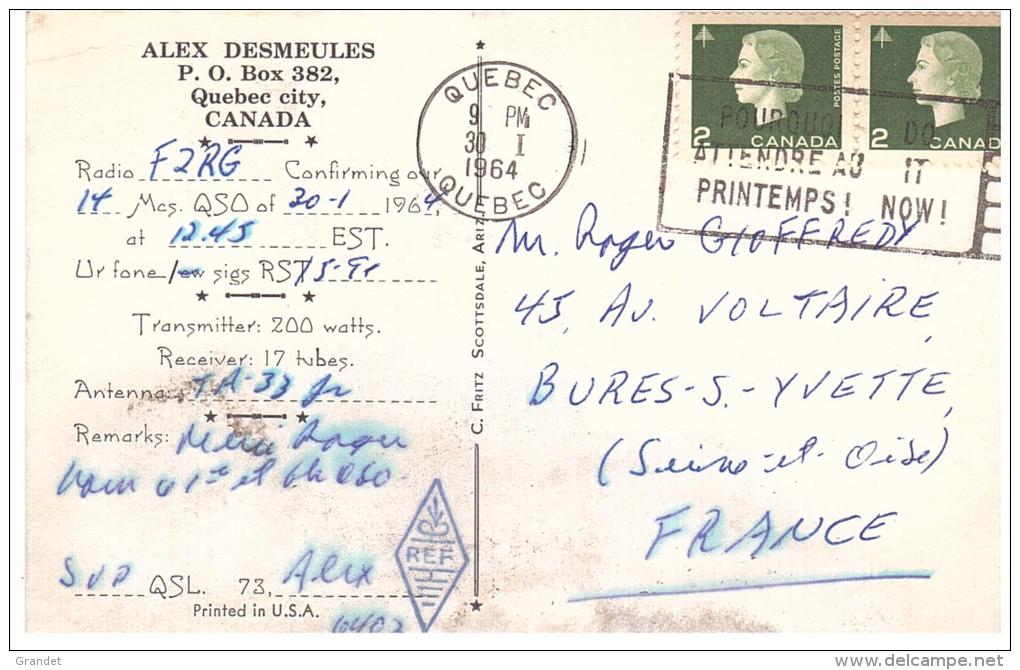 ALEX DESMEULES
P. O. Box 382,
Quebec city,
CANADA
Radio F2RG Confirming our
14 Mcs. QSO of 30-1 1964,
at 12.45 EST.
Ur fone/cw sigs RST
Transmitter: 200 watts.
Receiver: 17 tubes.
Antenna: TA-33 Jr
Remarks: Merci Roger
et QSO.
SVP QSL. 73, Alex
Printed in U.S.A.
REF
C. FRITZ SCOTTSDALE, ARIZ
QUEBEC
9 PM
30 I
1964
QUEBEC
2 CANADA
POSTES POSTAGE
2 CANADA
POURQUOI DO
ATTENDRE AU IT
PRINTEMPS! NOW!
Mr. Roger GIOFFREDY
45, AV. VOLTAIRE,
BURES-S.-YVETTE,
(Seine-et-Oise)
FRANCE
Grandet
delcampe.net